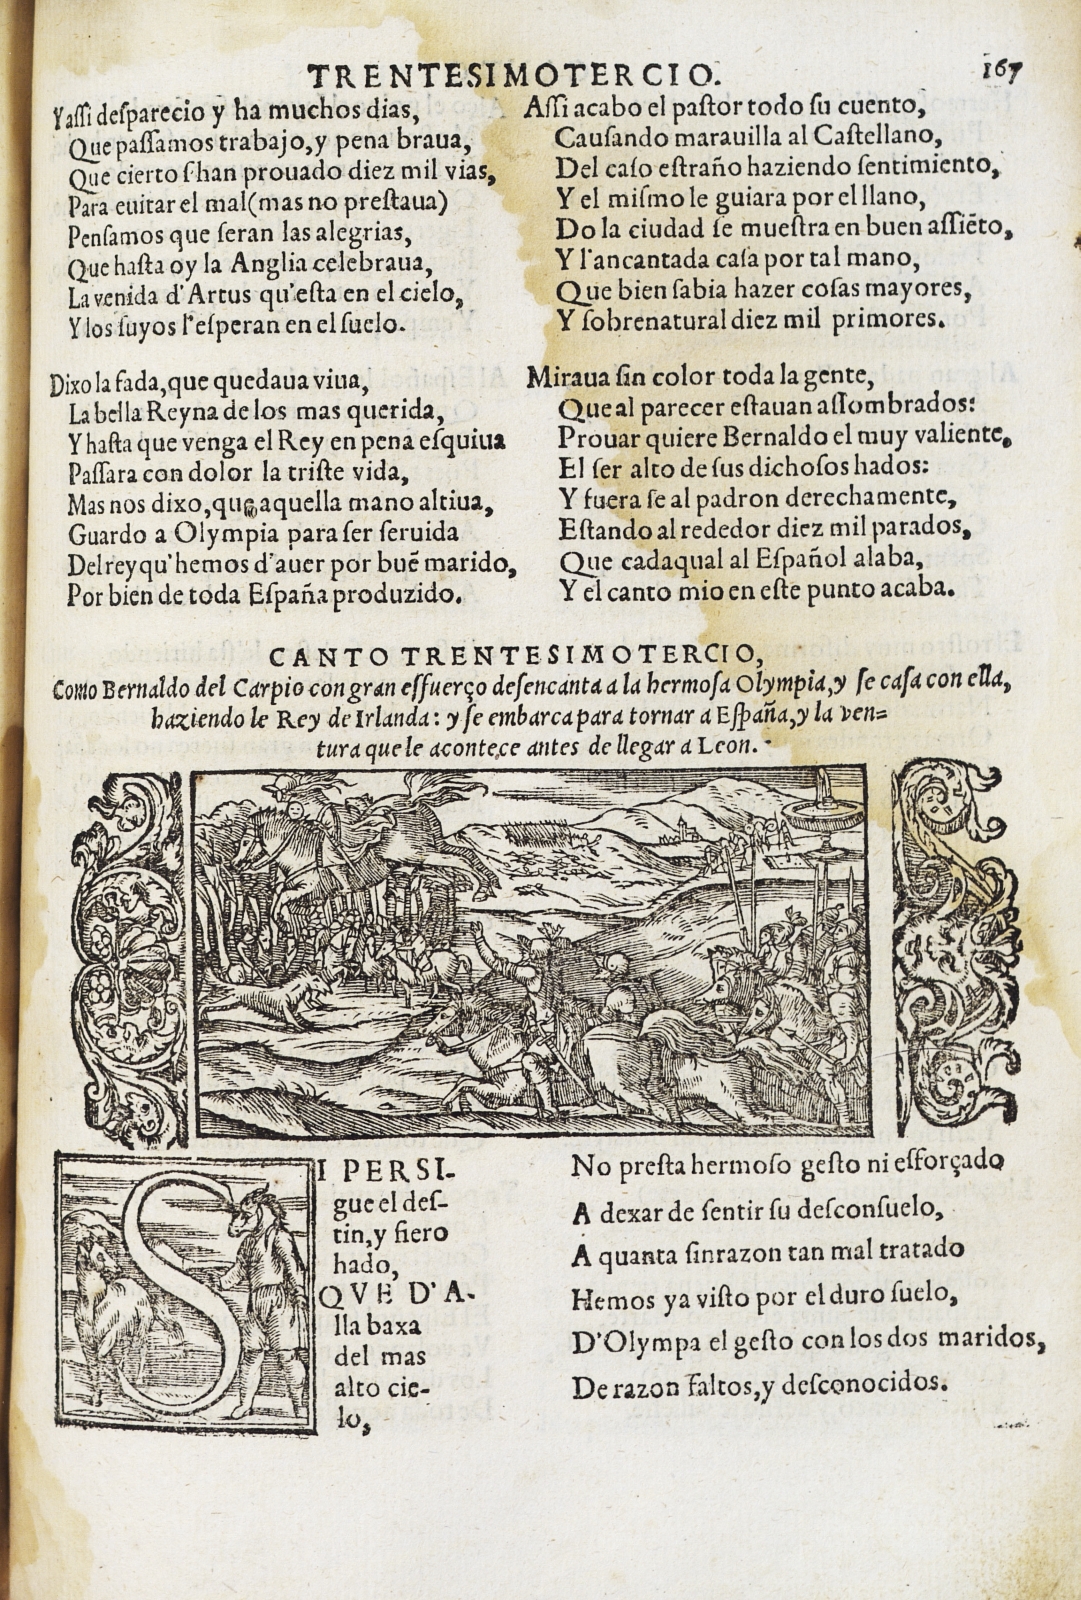 TRENTESIMOTERCIO.
167
Y aſſi deſparecio y ha muchos dias,
Que paſſamos trabajo, y pena braua,
Que cierto s'han prouado diez mil vias,
Para euitar el mal (mas no preſtaua)
Penſamos que ſeran las alegrias,
Que haſta oy la Anglia celebraua,
La venida d'Artus qu'eſta en el cielo,
Y los ſuyos l'eſperan en el ſuelo.
Dixo la fada, que quedaua viua,
La bella Reyna de los mas querida,
Y haſta que venga el Rey en pena eſquiua
Paſſara con dolor la triſte vida,
Mas nos dixo, que aquella mano altiua,
Guardo a Olympia para ſer ſeruida
Del rey qu'hemos d'auer por buē marido,
Por bien de toda Eſpaña produzido.
Aſſi acabo el paſtor todo ſu cuento,
Cauſando marauilla al Caſtellano,
Del caſo eſtraño haziendo ſentimiento,
Y el miſmo le guiara por el llano,
Do la ciudad ſe mueſtra en buen aſſiēto,
Y l'ancantada caſa por tal mano,
Que bien ſabia hazer coſas mayores,
Y ſobrenatural diez mil primores.
Miraua ſin color toda la gente,
Que al parecer eſtauan aſſombrados:
Prouar quiere Bernaldo el muy valiente,
El ſer alto de ſus dichoſos hados:
Y fuera ſe al padron derechamente,
Eſtando al rededor diez mil parados,
Que cadaqual al Eſpañol alaba,
Y el canto mio en eſte punto acaba.
CANTO TRENTESIMOTERCIO,
Como Bernaldo del Carpio con gran eſfuerço deſencanta a la hermoſa Olympia, y ſe caſa con ella,
haziendo le Rey de Irlanda: y ſe embarca para tornar a Eſpaña, y la ven=
tura que le acontece antes de llegar a Leon.
SI PERSI-
gue el deſ-
tin, y fiero
hado,
QVE D'A-
lla baxa
del mas
alto cie-
lo,
No preſta hermoſo geſto ni eſforçado
A dexar de ſentir ſu deſconſuelo,
A quanta ſinrazon tan mal tratado
Hemos ya viſto por el duro ſuelo,
D'Olympa el geſto con los dos maridos,
De razon faltos, y deſconocidos.